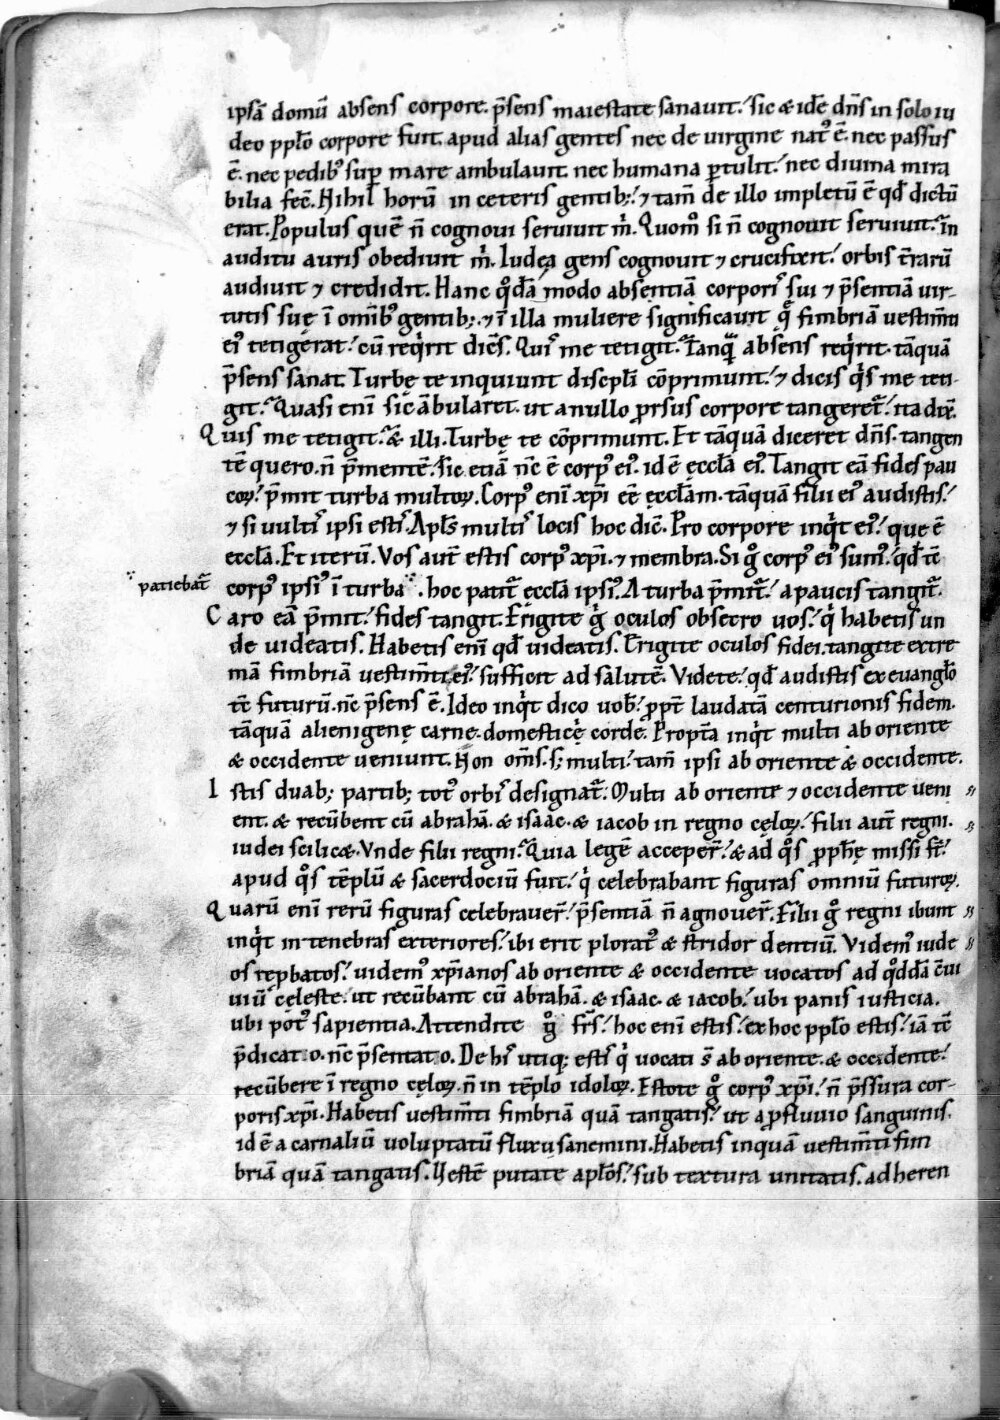 ipsā domū absens corpore. p̄sens maiestate sanauit. sic & idē dn̄s in solo iu
deo pplo corpore fuit. apud alias gentes nec de uirgine natꝰ ē. nec passus
ē. nec pedibꝰ sup mare ambulauit. nec humana ꝑtulit. nec diuina mira
bilia fec̄. Nihil horū in ceteris gentib; ⁊ tam̄ de illo impletū ē qd̄ dictū
erat. Populus quē n̄ cognoui seruiuit m̍. Quom̊ si n̄ cognouit seruiuit. In
auditu auris obediuit m̍. Iudęa gens cognouit ⁊ crucifixit. orbis t̄rarū
audiuit ⁊ credidit. Hanc qͦdā modo absentiā corporis sui ⁊ p̄sentiā uir-
tutis suę ī om̄ibꝰ gentib; ⁊ ī illa muliere significauit q̄ fimbriā uestim̄ti
eiꝰ tetigerat. cū req̍rit dicēs. Quis me tetigit. Tanqͣ absens req̍rit. tāquā
p̄sens sanat. Turbę te inquiunt discipl̄i cōprimunt. ⁊ dicis q̍s me teti-
git. Quasi enī sic ābularet. ut a nullo ꝓrsus corpore tangeret̄. ita dix̄.
Quis me tetigit. & illi. Turbę te cōprimunt. Et tāquā diceret dn̄s. tangen
tē quero. n̄ p̄mentē. Sic etiā nc̄ ē corpꝰ eiꝰ. id ē eccl̄a eiꝰ. Tangit eā fides pau
coꝝ. p̄mit turba multoꝝ. Corpꝰ enī xp̄i eē ęccl̄am. tāquā filii eiꝰ audistis.
⁊ si uultis ipsi estis. Apl̄s multis locis hoc dic̄. Pro corpore inq̍t eiꝰ. que ē
eccl̄a. Et iterū. Vos aut̄ estis corpꝰ xp̄i. ⁊ membra. Si gͦ corpꝰ eiꝰ sumꝰ. qd̄ tē
patiebat̄
corpꝰ ipsiꝰ ī turba. hoc patit̄ eccl̄a ipsiꝰ. A turba p̄mit̄. a paucis tangit̄.
Caro eā p̄mit. fides tangit. Erigite gͦ oculos obsecro uos. q̍ habetis un
de uideatis. Habetis enī qd̄ uideatis. Erigite oculos fidei. tangite extre
mā fimbriā uestim̄ti eiꝰ. sufficit ad salutē. Videte. qd̄ audistis ex euangl̄o
tē futurū. nc̄ p̄sens ē. Ideo inq̍t dico uob̄. ꝓpt̄ laudatā centurionis fidem.
tāquā alienigenę carne. domesticę corde. Propt̄a inq̍t multi ab oriente
& occidente ueniunt. Non om̄s. s; multi. tam̄ ipsi ab oriente & occidente.
Istis duab; partib; totꝰ orbis designat̄. Multi ab oriente ⁊ occidente ueni
ent. & recūbent cū abrahā. & isaac. & iacob in regno cęloꝝ. filii aut̄ regni.
iudei scilic&. Vnde filii regni. Quia legē acceper̄. & ad q̊s ꝓph̄ę missi st̄.
apud q̊s tēplū & sacerdociū fuit. q̍ celebrabant figuras omniū futuroꝝ.
Quarū enī rerū figuras celebrauer̄. p̄sentiā n̄ agnouer̄. Filii gͦ regni ibunt
inq̍t in tenebras exteriores. ibi erit ploratꝰ & stridor dentiū. Videmꝰ iude
os reꝓbatos. uidemꝰ xp̄ianos ab oriente & occidente uocatos ad qͦddā c̄ui
uiū cęleste. ut recūbant cū abrahā. & isaac. & iacob. ubi panis iusticia.
ubi potꝰ sapientia. Attendite gͦ fr̄s. hoc enī estis. ex hoc pplo estis. iā tē
p̄dicato. nc̄ p̄sentato. De his utiq; estis q̍ uocati s̄ ab oriente. & occidente.
recūbere ī regno cęloꝝ. n̄ in tēplo idoloꝝ. Estote gͦ corpꝰ xp̄i. n̄ p̄ssura cor-
poris xp̄i. Habetis uestim̄ti fimbriā quā tangatis. ut a ꝓfluuio sanguinis.
id ē a carnaliū uoluptatū fluxu sanemini. Habetis inquā uestim̄ti fim
briā quā tangatis. Vestē putate apl̄os. sub textura unitatis. adheren